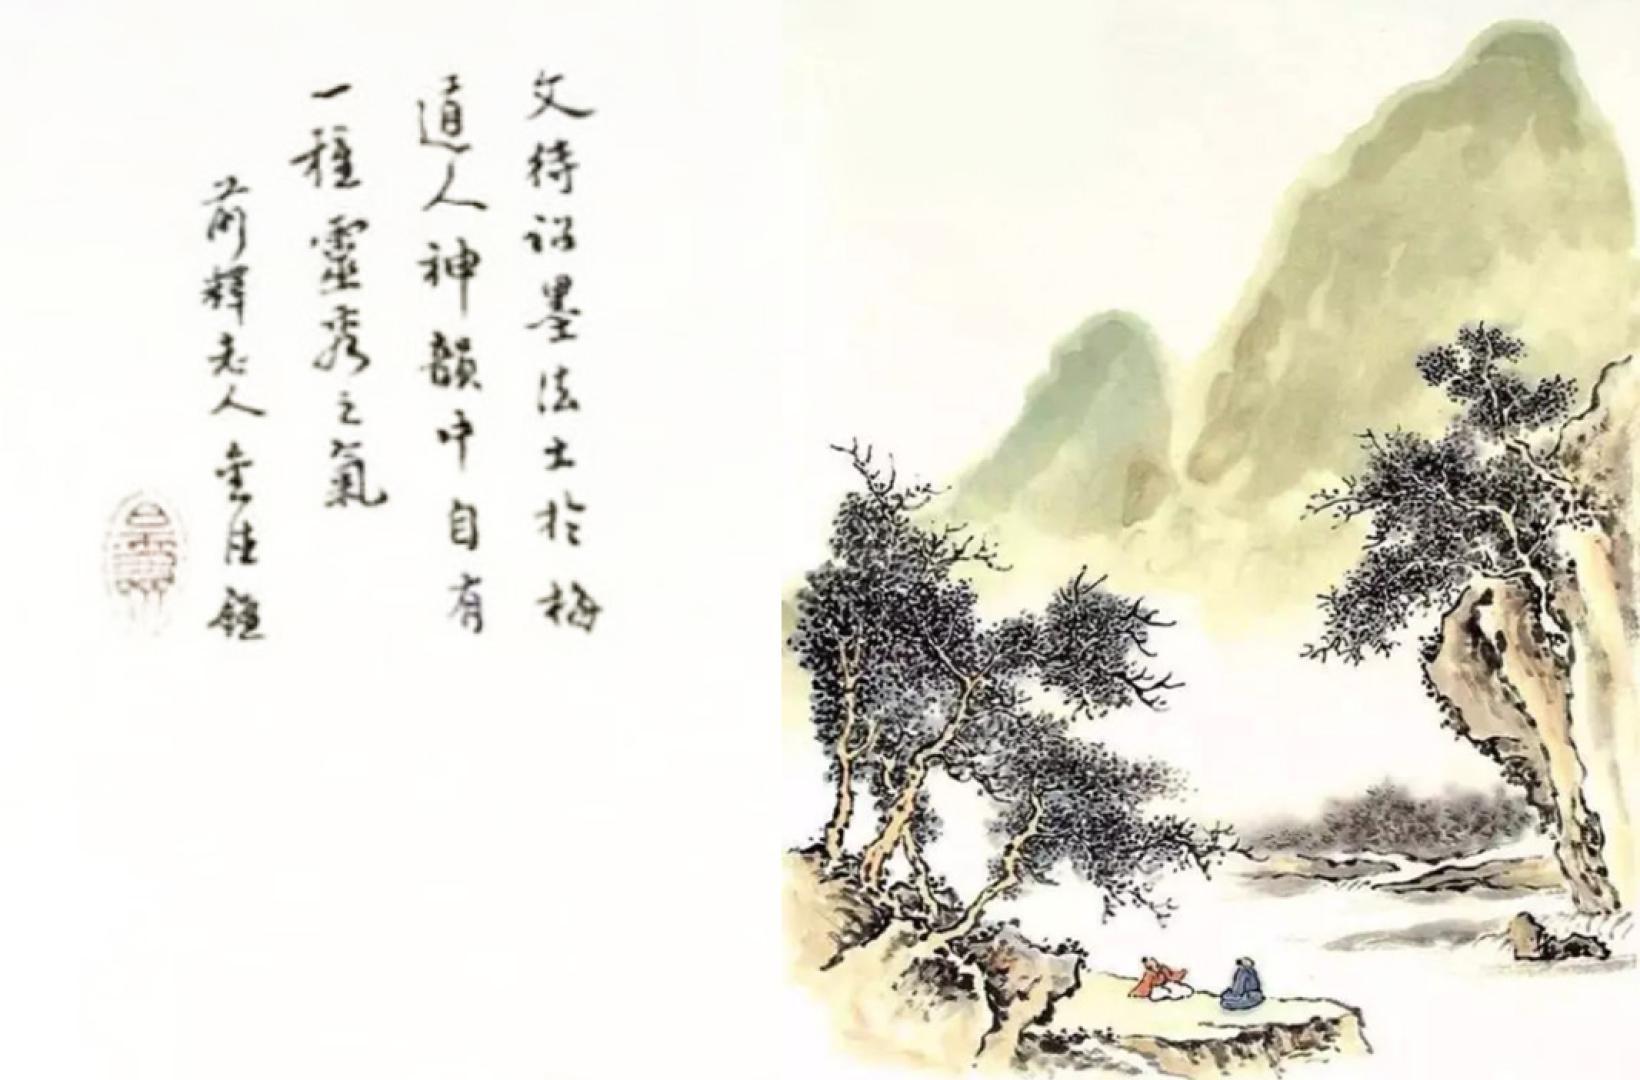 文待詔墨法出於梅
道人神韻中自有
一種靈秀之氣
前輝老人